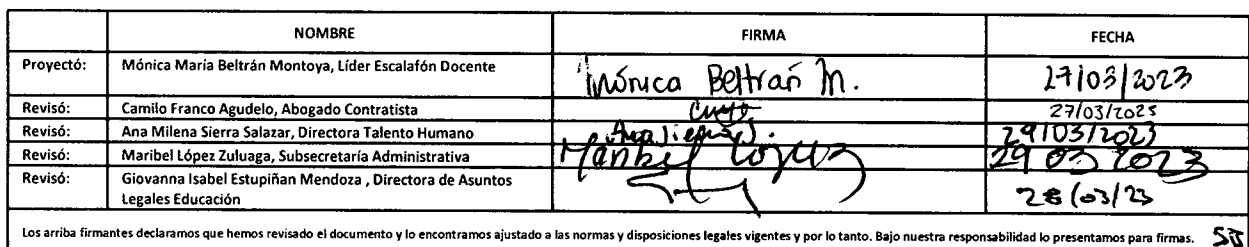 NOMBRE FIRMA FECHA
Proyectó: Mónica María Beltrán Montoya, Líder Escalafón Docente Mónica Beltrán M. 27/03/2023
Revisó: Camilo Franco Agudelo, Abogado Contratista 27/03/2023
Revisó: Ana Milena Sierra Salazar, Directora Talento Humano 29/03/2023
Revisó: Maribel López Zuluaga, Subsecretaría Administrativa Maribel López 29 03 2023
Revisó: Giovanna Isabel Estupiñan Mendoza , Directora de Asuntos 28/03/23
Legales Educación
Los arriba firmantes declaramos que hemos revisado el documento y lo encontramos ajustado a las normas y disposiciones legales vigentes y por lo tanto. Bajo nuestra responsabilidad lo presentamos para firmas.